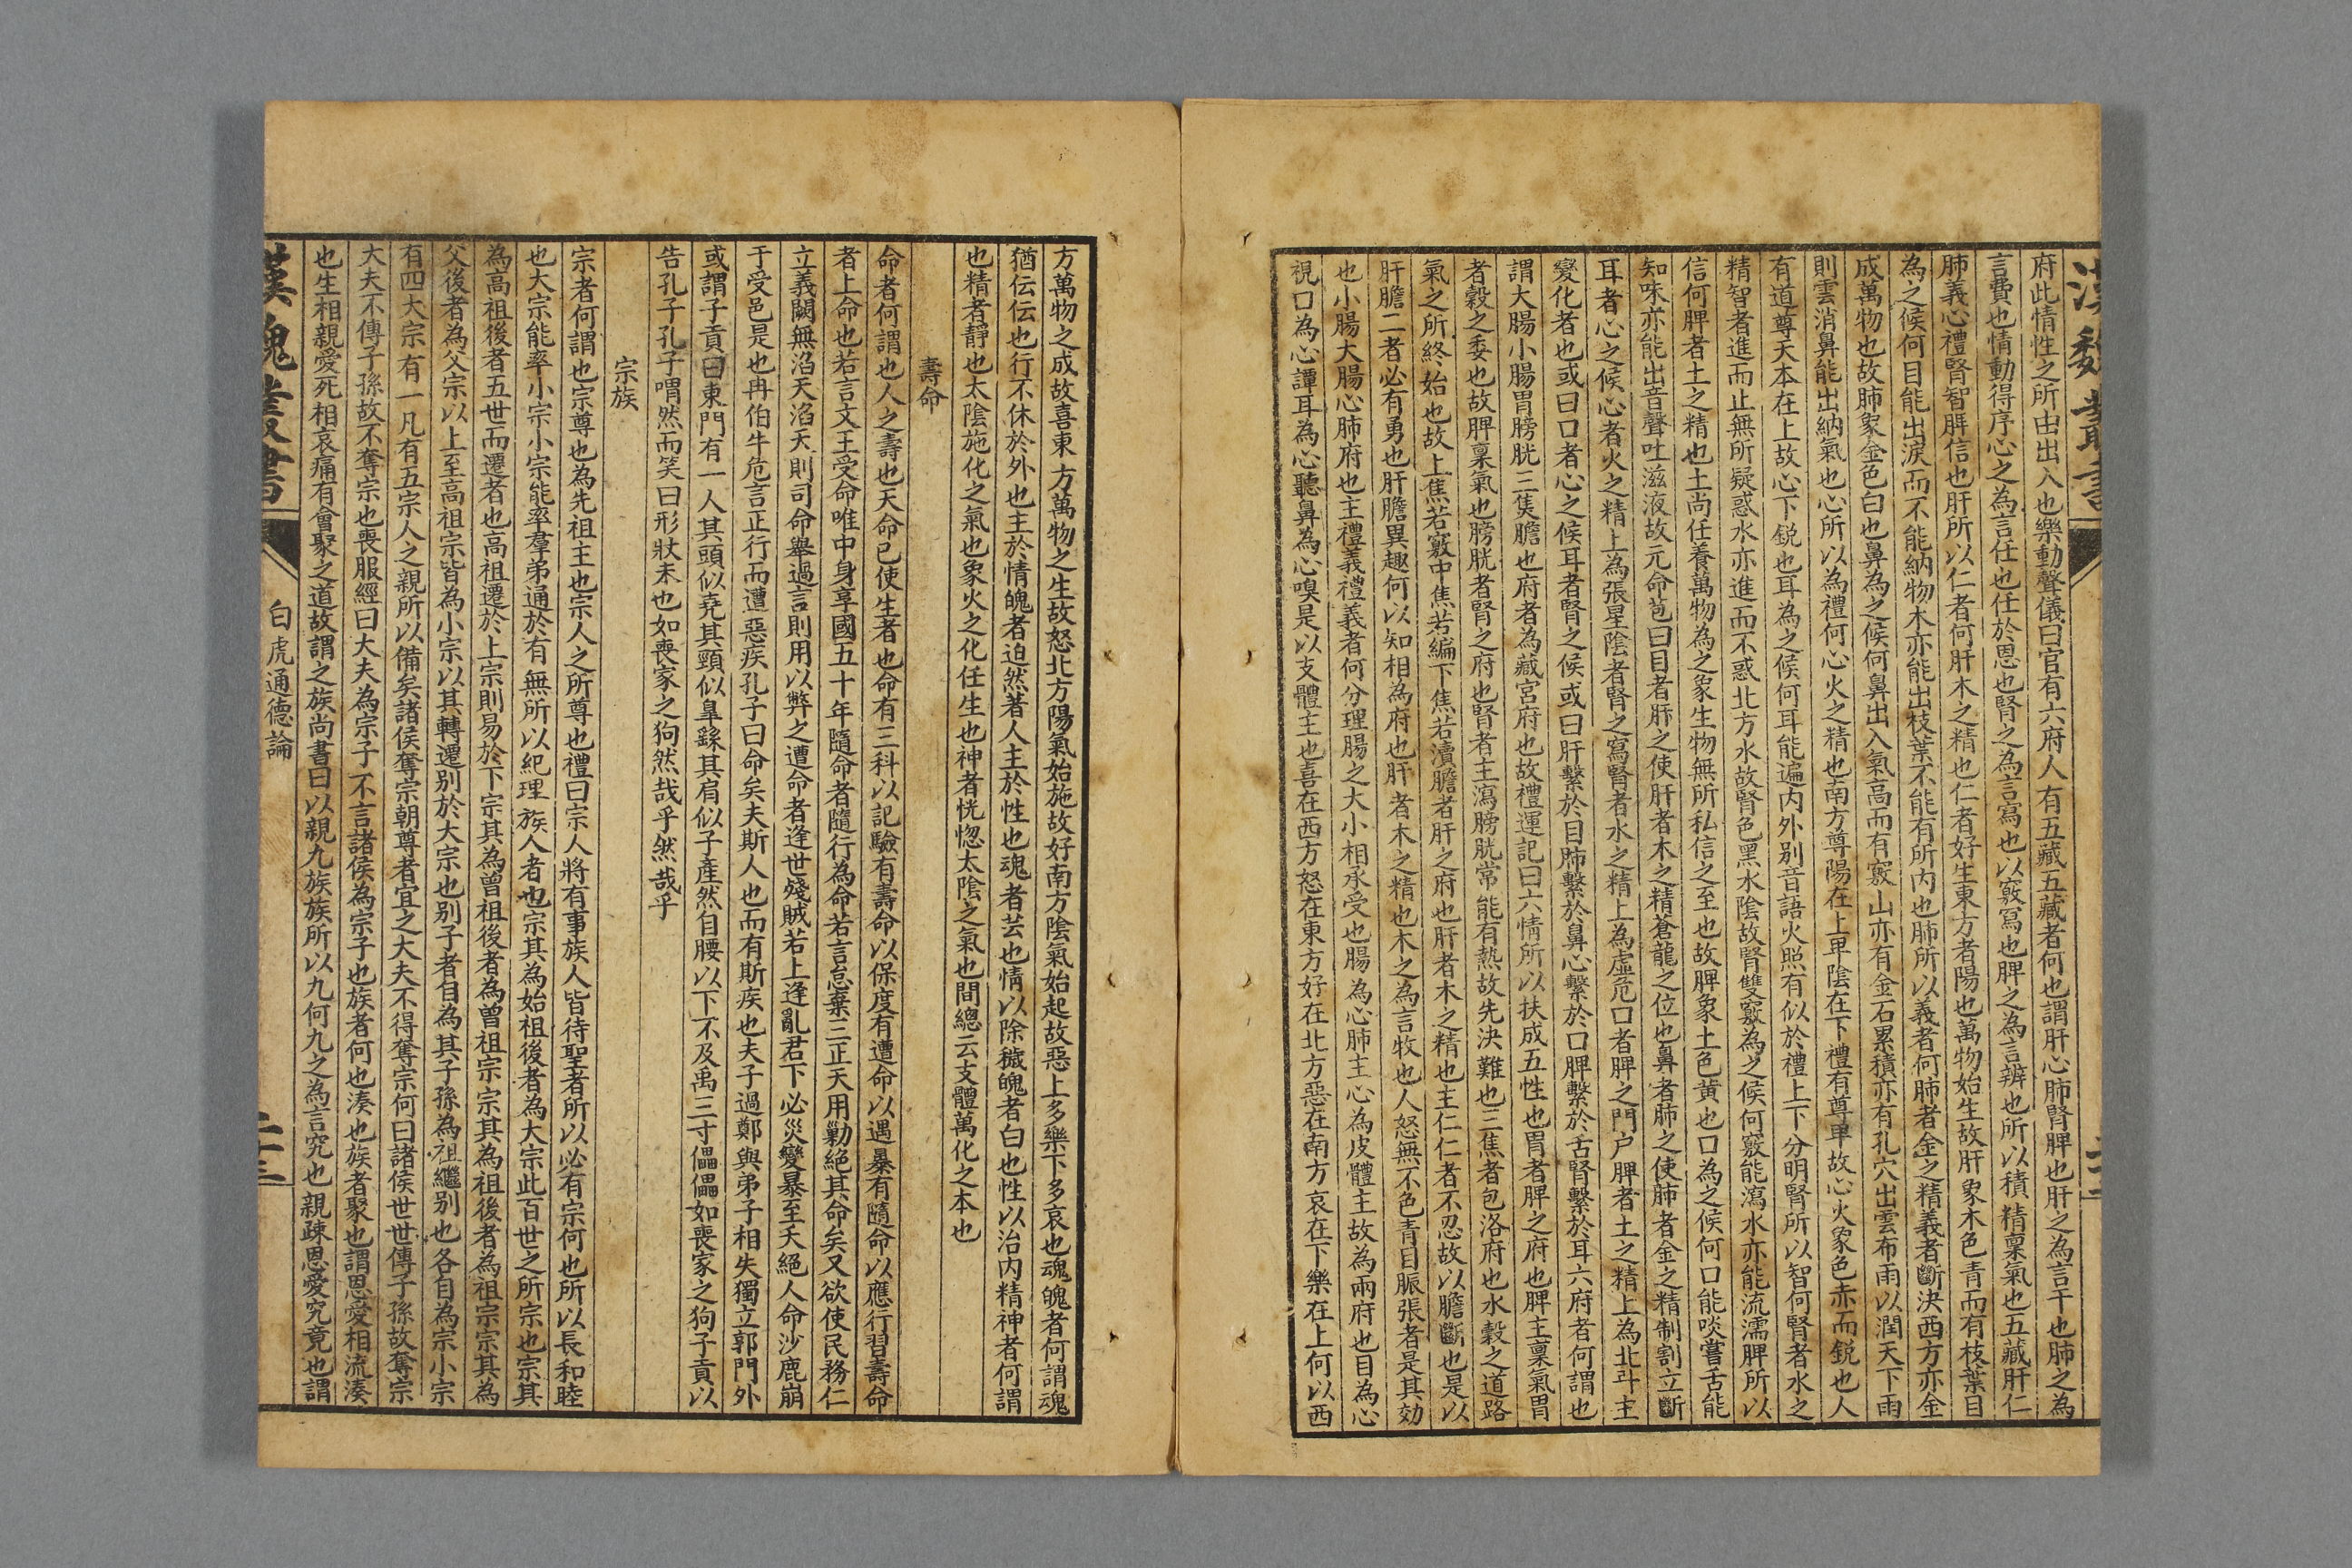 府此情性之所由出入也樂動聲儀曰官有六府人有五藏五藏者何也謂肝心肺腎脾也肝之為言干也肺之為
言費也情動得序心之為言任也任於恩也腎之為言寫也以竅寫也脾之為言辨也所以積精稟氣也五藏肝仁
肺義心禮腎智脾信也肝所以仁者何肝木之精也仁者好生東方者陽也萬物始生故肝象木色青而有枝葉目
為之候何目能出淚而不能納物木亦能出枝葉不能有所內也肺所以義者何肺者金之精義者斷決西方亦金
成萬物也故肺象金色白也鼻為之候何鼻出入氣高而有竅山亦有金石累積亦有孔穴出雲布雨以潤天下雨
則雲消鼻能出納氣也心所以為禮何心火之精也南方尊陽在上卑陰在下禮有尊卑故心火象色赤而銳也人
有道尊天本在上故心下銳也耳為之候何耳能遍內外別音語火照有似於禮上下分明腎所以智何腎者水之
精智者進而止無所疑惑水亦進而不惑北方水故腎色黑水陰故腎雙竅為之候何竅能瀉水亦能流濡脾所以
信何脾者土之精也土尚任養萬物為之象生物無所私信之至也故脾象土色黄也口為之候何口能啖嘗舌能
知味亦能出音聲吐滋液故元命苞曰目者肝之使肝者木之精蒼龍之位也鼻者肺之使肺者金之精制割立斷
耳者心之候心者火之精上為張星陰者腎之寫腎者水之精上為虛危口者脾之門户脾者土之精上為北斗主
變化者也或曰口者心之候耳者腎之候或曰肝繫於目肺繫於鼻心繫於口脾繫於舌腎繫於耳六府者何謂也
謂大腸小腸胃膀胱三焦膽也府者為藏宮府也故禮運記曰六情所以扶成五性也胃者脾之府也脾主稟氣胃
者穀之委也故脾稟氣也膀胱者腎之府也腎者主瀉膀胱常能有熱故先決難也三焦者包洛府也水穀之道路
氣之所終始也故上焦若竅中焦若編下焦若瀆膽者肝之府也肝者木之精也主仁仁者不忍故以膽斷也是以
肝膽二者必有勇也肝膽異趣何以知相為府也肝者木之精也木之為言牧也人怒無不色青目脤張者是其効
也小腸大腸心肺府也主禮義禮義者何分理腸之大小相承受也腸為心肺主心為皮體主故為兩府也目為心
視口為心譚耳為心聽鼻為心嗅是以支體主也喜在西方怒在東方好在北方惡在南方哀在下樂在上何以西
方萬物之成故喜東方萬物之生故怒北方陽氣始施故好南方陰氣始起故惡上多樂下多哀也魂魄者何謂魂
猶伝伝也行不休於外也主於情魄者迫然著人主於性也魂者芸也情以除穢魄者白也性以治內精神者何謂
也精者靜也太陰施化之氣也象火之化任生也神者恍惚太陰之氣也間總云支體萬化之本也
壽命
命者何謂也人之壽也天命已使生者也命有三科以記驗有壽命以保度有遭命以遇暴有隨命以應行習壽命
者上命也若言文王受命唯中身享國五十年隨命者隨行為命若言怠棄三正天用勦絕其命矣又欲使民務仁
立義闕無滔天滔天則司命舉過言則用以弊之遭命者逢世殘賊若上逢亂君下必災變暴至夭絕人命沙鹿崩
于受邑是也冉伯牛危言正行而遭惡疾孔子曰命矣夫斯人也而有斯疾也夫子過鄭與弟子相失獨立郭門外
或謂子貢曰東門有一人其頭似堯其頸似臯繇其肩似子產然自腰以下不及禹三寸儡儡如喪家之狗子貢以
告孔子孔子喟然而笑曰形狀未也如喪家之狗然哉乎然哉乎
宗族
宗者何謂也宗尊也為先祖主也宗人之所尊也禮曰宗人將有事族人皆待聖者所以必有宗何也所以長和睦
也大宗能率小宗小宗能率羣弟通於有無所以紀理族人者也宗其為始祖後者為大宗此百世之所宗也宗其
為高祖後者五世而遷者也高祖遷於上宗則易於下宗其為曾祖後者為曾祖宗宗其為祖後者為祖宗宗其為
父後者為父宗以上至高祖宗皆為小宗以其轉遷別於大宗也別子者自為其子孫為祖繼別也各自為宗小宗
有四大宗有一凡有五宗人之親所以備矣諸侯奪宗朝尊者宜之大夫不得奪宗何曰諸侯世世傳子孫故奪宗
大夫不傳子孫故不奪宗也喪服經曰大夫為宗子不言諸侯為宗子也族者何也湊也族者聚也謂恩愛相流湊
也生相親愛死相哀痛有會聚之道故謂之族尚書曰以親九族族所以九何九之為言究也親疎恩愛究竟也謂
漢魏叢書
白虎通德論